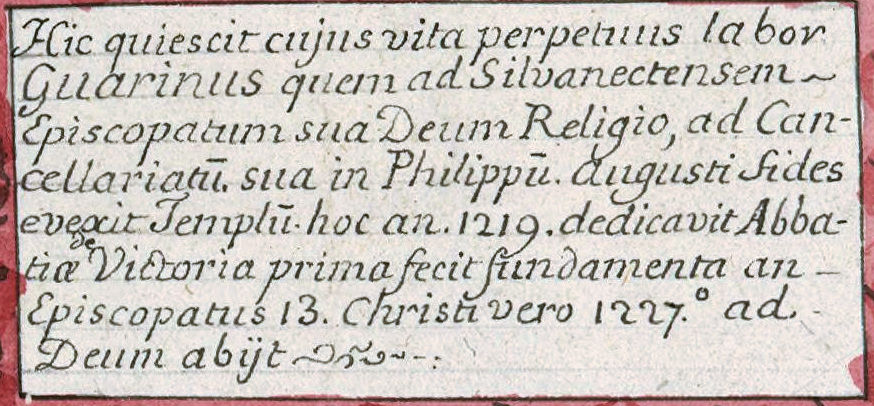 Hic quiescit cujus vita perpetuus labor
Guarinus quem ad Silvanectensem
Episcopatum sua Deum Religio, ad Can-
cellariatū. sua in Philippū. Augusti fides
evexit Templū. hoc an. 1219. dedicavit Abba-
tiæ de Victoria prima fecit fundamenta an
Episcopatus 13. Christi vero 1227.º ad.
Deum abijt